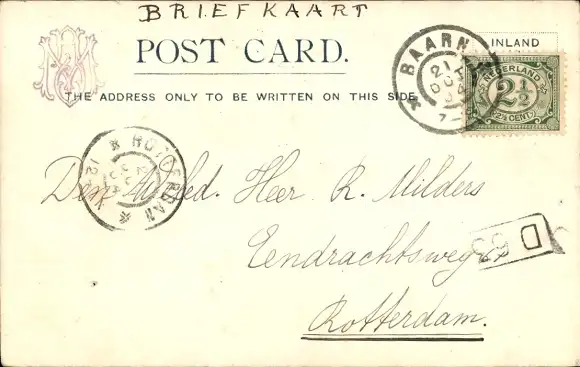 BRIEFKAART
POST CARD.
INLAND
THE ADDRESS ONLY TO BE WRITTEN ON THIS SIDE
BAARN
21
OCT
NEDERLAND
2½
(2½ CENT)
ROTTERDAM
Den Heer R. Milders
Eendrachtsweg
D 53
Rotterdam.